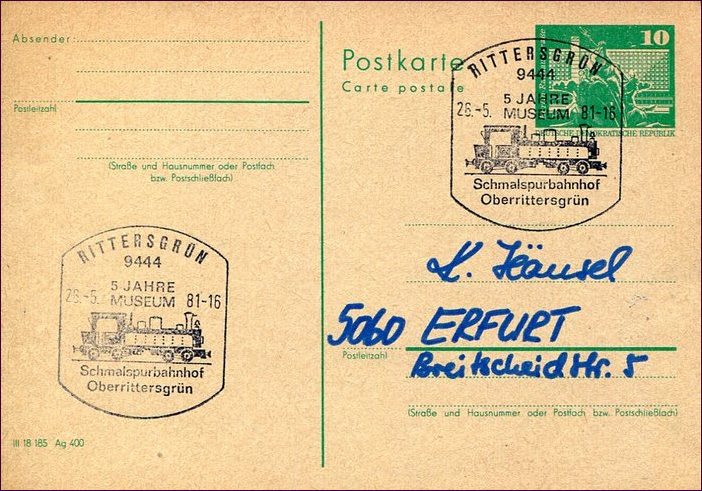 Absender:
Postleitzahl
(Straße und Hausnummer oder Postfach
bzw. Postschließfach)
RITTERSGRÜN
9444
5 JAHRE
26.-5. MUSEUM 81-16
Schmalspurbahnhof
Oberrittersgrün
III 18 185 Ag 400
Postkarte
Carte postale
10
DEUTSCHE DEMOKRATISCHE REPUBLIK
RITTERSGRÜN
9444
5 JAHRE
26.-5. MUSEUM 81-16
Schmalspurbahnhof
Oberrittersgrün
K. Hänsel
5060 ERFURT
Postleitzahl
Breitscheidstr. 5
(Straße und Hausnummer oder Postfach bzw. Postschließfach)